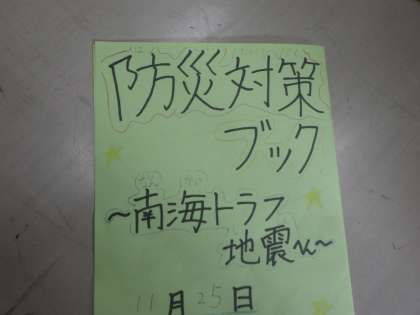 防災対策
ブック
~南海トラフ
地震~
11月25日